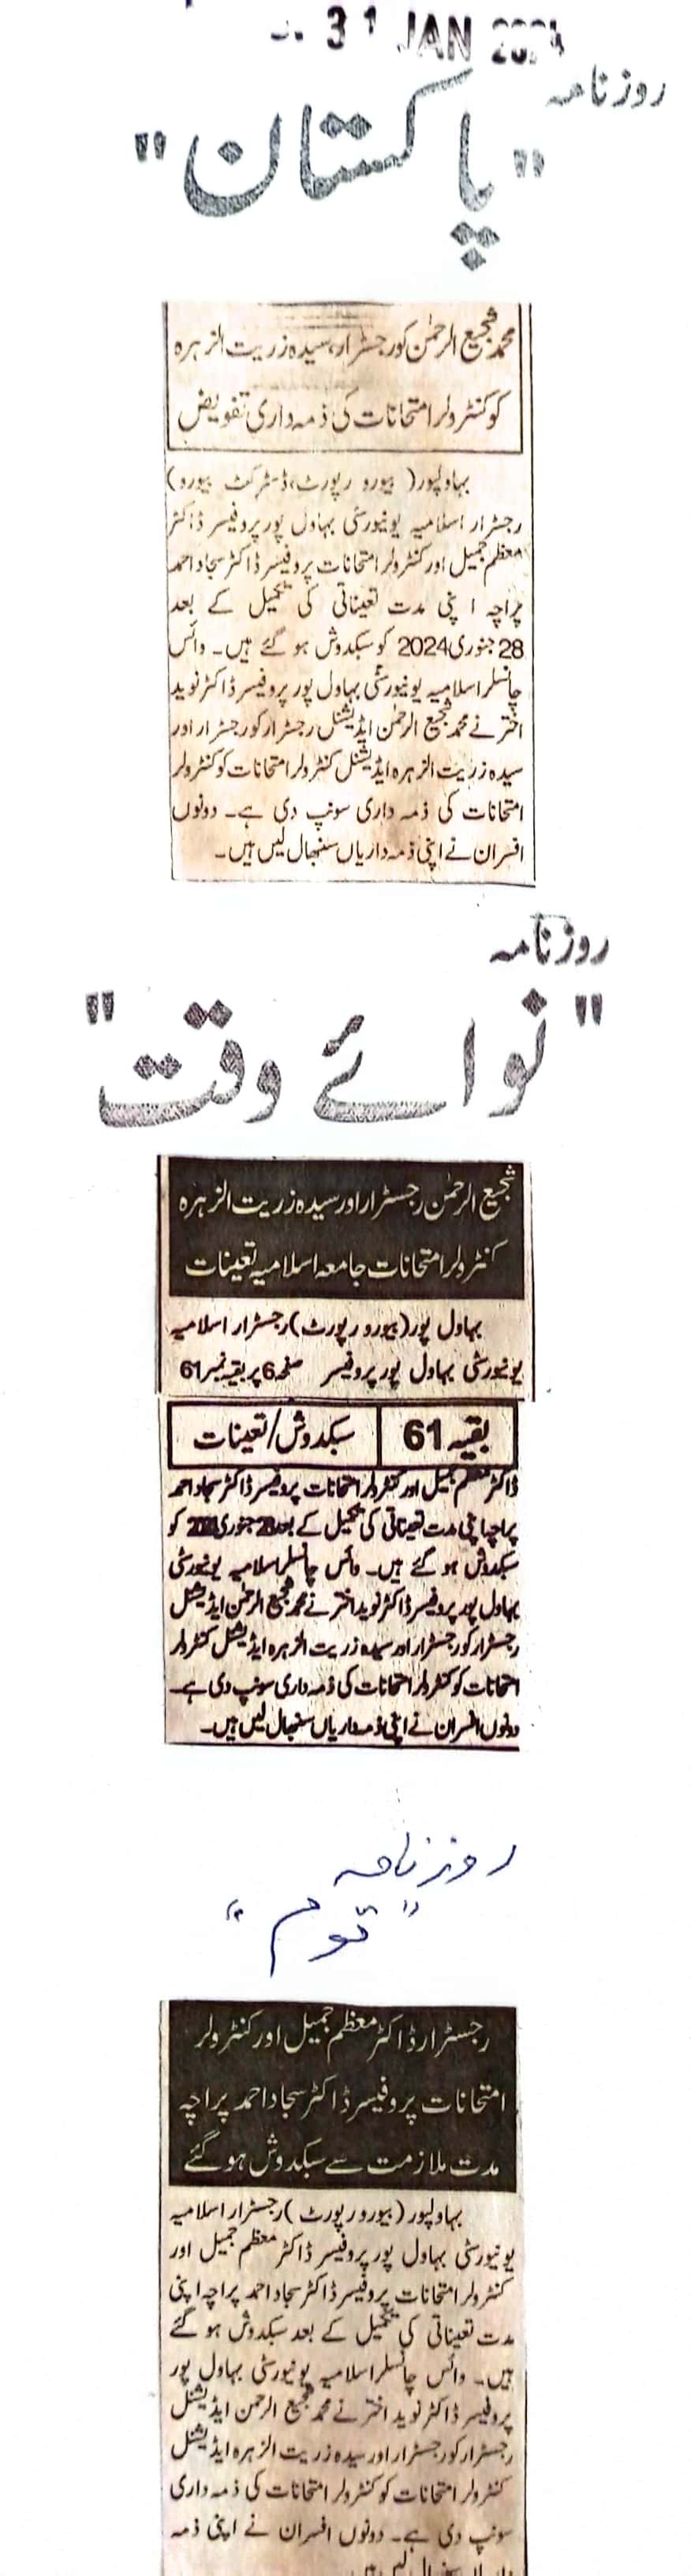 31 JAN 2024
روزنامہ
"پاکستان"
محمد شجیع الرحمٰن کو رجسٹرار، سیدہ زریت الزہرہ
کو کنٹرولر امتحانات کی ذمہ داری تفویض
بہاولپور( بیورو رپورٹ، ڈسٹرکٹ بیورو)
رجسٹرار اسلامیہ یونیورسٹی بہاول پور پروفیسر ڈاکٹر
معظم جمیل اور کنٹرولر امتحانات پروفیسر ڈاکٹر سجاد احمد
پراچہ اپنی مدت تعیناتی کی تکمیل کے بعد
28 جنوری 2024 کو سبکدوش ہو گئے ہیں۔ وائس
چانسلر اسلامیہ یونیورسٹی بہاول پور پروفیسر ڈاکٹر نوید
اختر نے محمد شجیع الرحمٰن ایڈیشنل رجسٹرار کو رجسٹرار اور
سیدہ زریت الزہرہ ایڈیشنل کنٹرولر امتحانات کو کنٹرولر
امتحانات کی ذمہ داری سونپ دی ہے۔ دونوں
افسران نے اپنی ذمہ داریاں سنبھال لیں ہیں۔
روزنامہ
"نوائے وقت"
شجیع الرحمٰن رجسٹرار اور سیدہ زریت الزہرہ
کنٹرولر امتحانات جامعہ اسلامیہ تعینات
بہاول پور (بیورو رپورٹ) رجسٹرار اسلامیہ
یونیورسٹی بہاول پور پروفیسر صفحہ 6 پر بقیہ نمبر 61
بقیہ 61 سبکدوش/تعینات
ڈاکٹر معظم جمیل اور کنٹرولر امتحانات پروفیسر ڈاکٹر سجاد احمد
پراچہ اپنی مدت تعیناتی کی تکمیل کے بعد 28 جنوری 2024 کو
سبکدوش ہو گئے ہیں۔ وائس چانسلر اسلامیہ یونیورسٹی
بہاول پور پروفیسر ڈاکٹر نوید اختر نے محمد شجیع الرحمٰن ایڈیشنل
رجسٹرار کو رجسٹرار اور سیدہ زریت الزہرہ ایڈیشنل کنٹرولر
امتحانات کو کنٹرولر امتحانات کی ذمہ داری سونپ دی ہے۔
دونوں افسران نے اپنی ذمہ داریاں سنبھال لیں ہیں۔
روزنامہ
"قوم"
رجسٹرار ڈاکٹر معظم جمیل اور کنٹرولر
امتحانات پروفیسر ڈاکٹر سجاد احمد پراچہ
مدت ملازمت سے سبکدوش ہو گئے
بہاولپور (بیورو رپورٹ) رجسٹرار اسلامیہ
یونیورسٹی بہاول پور پروفیسر ڈاکٹر معظم جمیل اور
کنٹرولر امتحانات پروفیسر ڈاکٹر سجاد احمد پراچہ اپنی
مدت تعیناتی کی تکمیل کے بعد سبکدوش ہو گئے
ہیں۔ وائس چانسلر اسلامیہ یونیورسٹی بہاول پور
پروفیسر ڈاکٹر نوید اختر نے محمد شجیع الرحمن ایڈیشنل
رجسٹرار کو رجسٹرار اور سیدہ زریت الزہرہ ایڈیشنل
کنٹرولر امتحانات کو کنٹرولر امتحانات کی ذمہ داری
سونپ دی ہے۔ دونوں افسران نے اپنی ذمہ